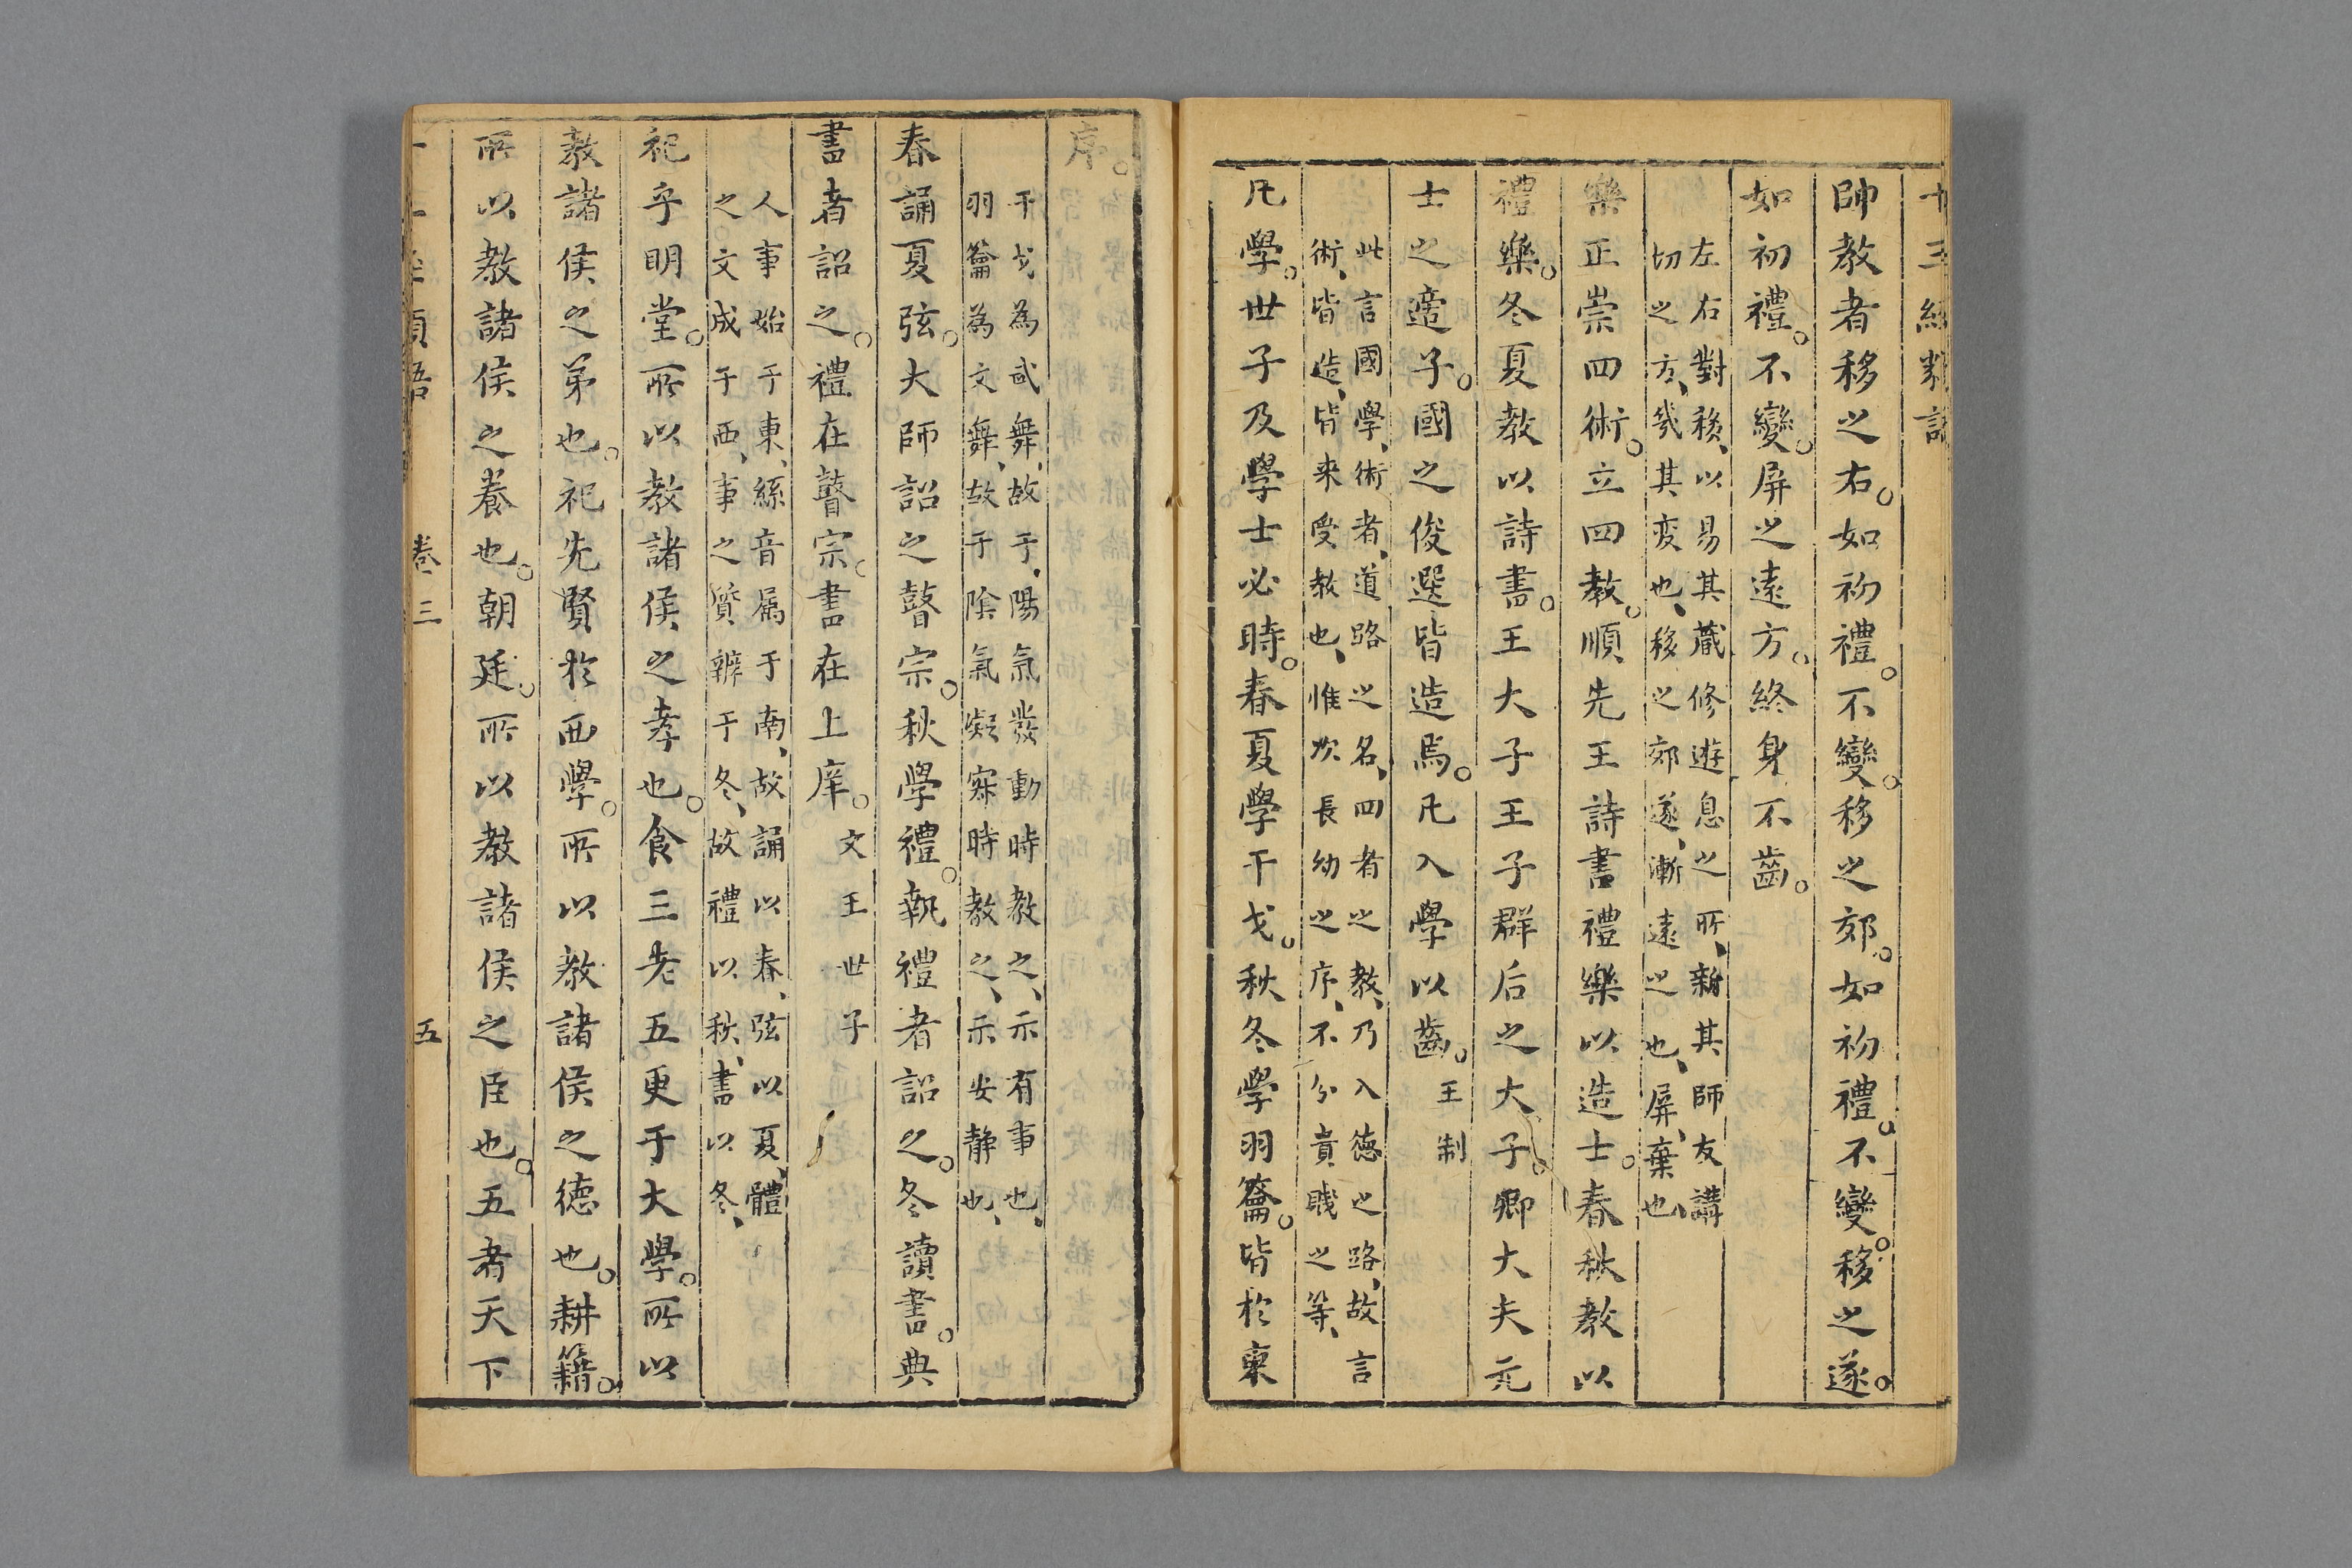 十三經類語
帥教者移之右。如初禮。不變。移之郊。如初禮。不變。移之遂。
如初禮。不變。屏之遠方。終身不齒。
左右對移、以易其藏修遊息之所、新其師友講
切之方、幾其変也、移之郊遂、漸遠之也、屏、棄也、
樂正崇四術。立四教。順先王詩書禮樂以造士。春秋教以
禮樂。冬夏教以詩書。王大子王子群后之大子。卿大夫元
士之適子。國之俊選皆造焉。凡入學以齒。王制
此言國學、術者、道路之名、四者之教、乃入德之路、故言
術、皆造、皆来受教也、惟次長幼之序、不分貴賎之等、
凡學。世子及學士必時。春夏學干戈。秋冬學羽籥。皆於東
序。
干戈為武舞、故于、陽氣發動時教之、示有事也、
羽籥為文舞、故于陰氣凝寂時教之、示安靜也、
春誦夏弦。大師詔之瞽宗。秋學禮。執禮者詔之。冬讀書。典
書者詔之。禮在瞽宗。書在上庠。文王世子
人事始于東、絲音属于南、故誦以春、弦以夏、體
之文成于西、事之質辨于冬、故禮以秋、書以冬、
祀乎明堂。所以教諸侯之孝也。食三老五更于大學。所以
教諸侯之弟也。祀先賢於西學。所以教諸侯之德也。耕籍。
所以教諸侯之養也。朝廷。所以教諸侯之臣也。五者天下
卷三 五